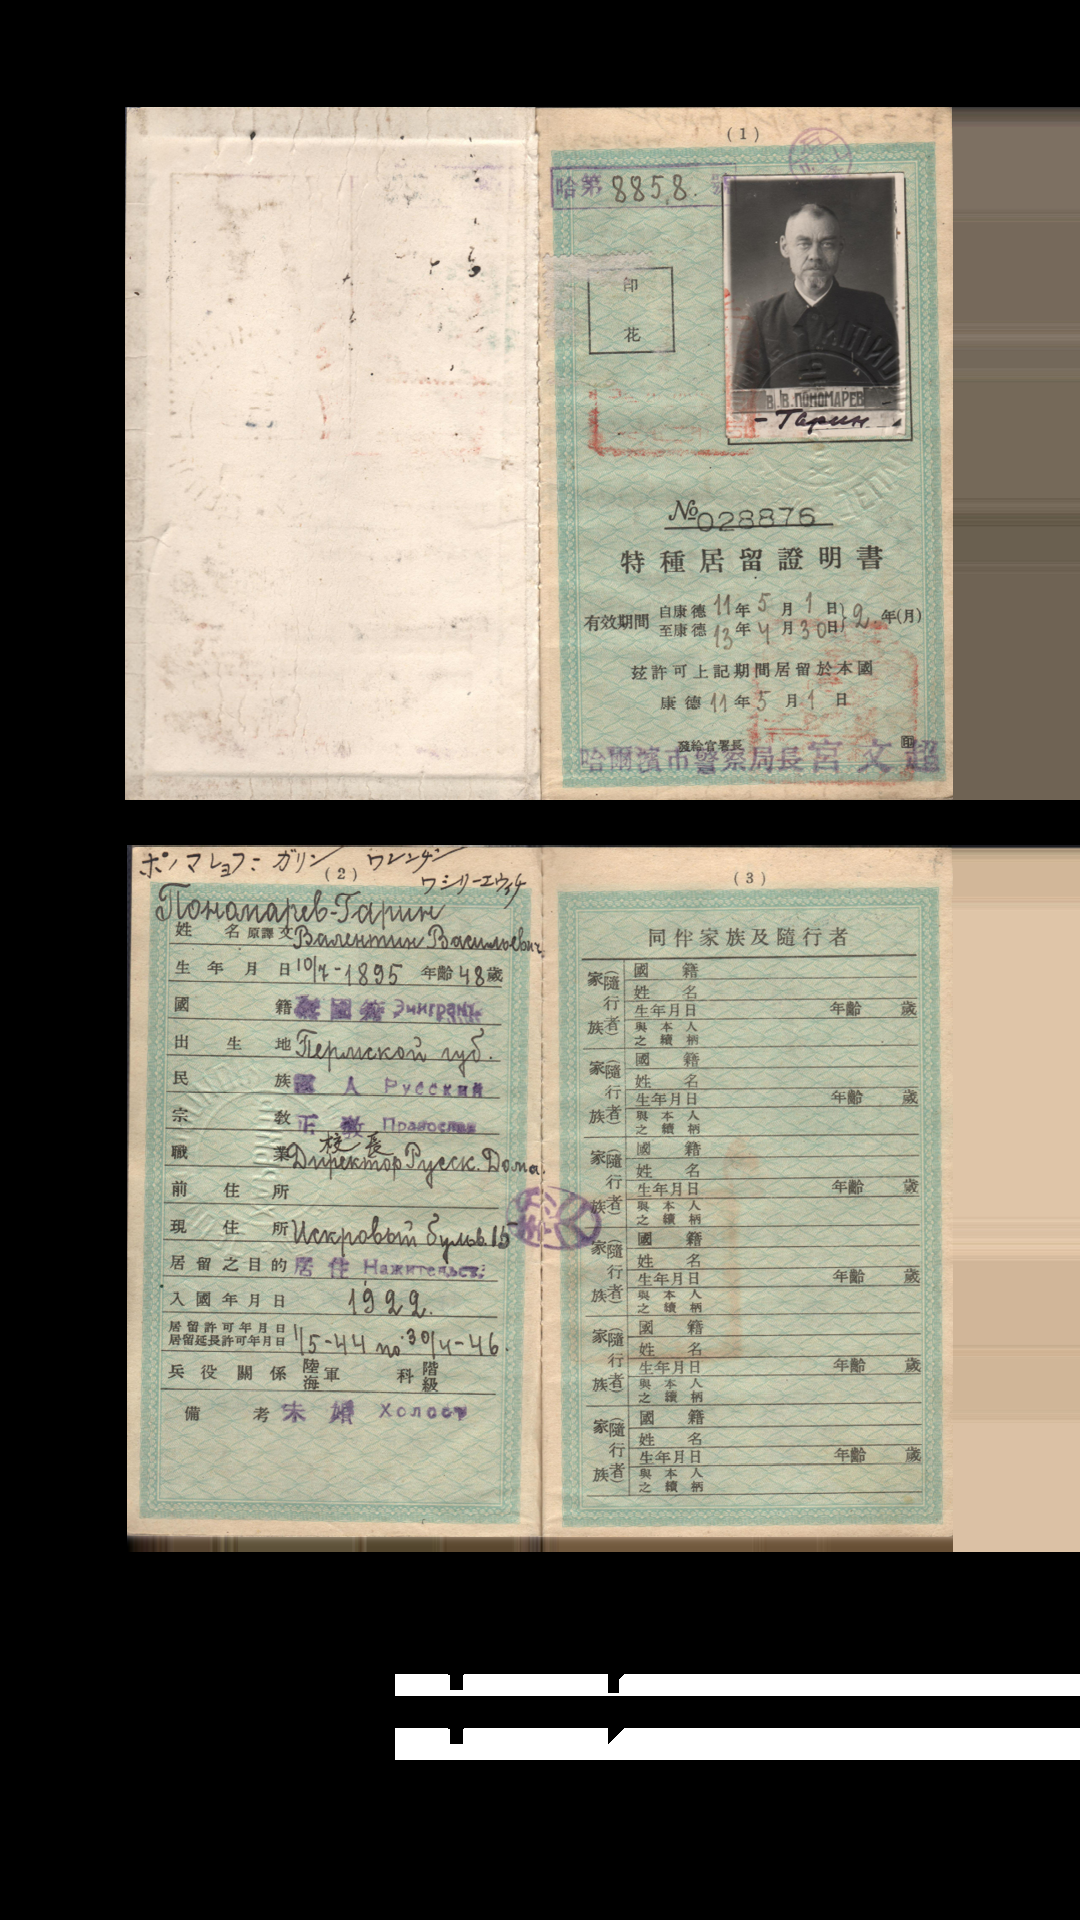 (1)
哈第8858.號
印
花
В.В.ПОНОМАРЕВ
-Гарин
№028876
特種居留證明書
有效期間
自康德11年5月1日
至康德13年4月30日
2年(月)
玆許可上記期間居留於本國
康德11年5月1日
發給官署長
印
哈爾濱市警察局長宮文超
ポノマレョフ=ガリン ワレンチン
(2)
ワシリーエウィチ
Пономарев-Гарин
姓名原譯文 Валентин Васильевич
生年月日 10/7-1895 年齡48歲
國籍 無國籍 Эмигрант
出生地 Пермской губ.
民族 露人 Русский
宗教 正教 Православн
校長
職業 Директор Русск. Дома.
前住所
現住所 Искровый бульв. 15
居留之目的 居住 На жительст:
入國年月日 1922.
居留許可年月日
居留延長許可年月日 1/5-44 по 30/4-46.
兵役關係 陸海軍 科 階級
備考 未婚 Холост
(3)
同伴家族及隨行者
家族(隨行者)
國籍
姓名
生年月日 年齡 歲
與本人之續柄
家族(隨行者)
國籍
姓名
生年月日 年齡 歲
與本人之續柄
家族(隨行者)
國籍
姓名
生年月日 年齡 歲
與本人之續柄
家族(隨行者)
國籍
姓名
生年月日 年齡 歲
與本人之續柄
家族(隨行者)
國籍
姓名
生年月日 年齡 歲
與本人之續柄
家族(隨行者)
國籍
姓名
生年月日 年齡 歲
與本人之續柄